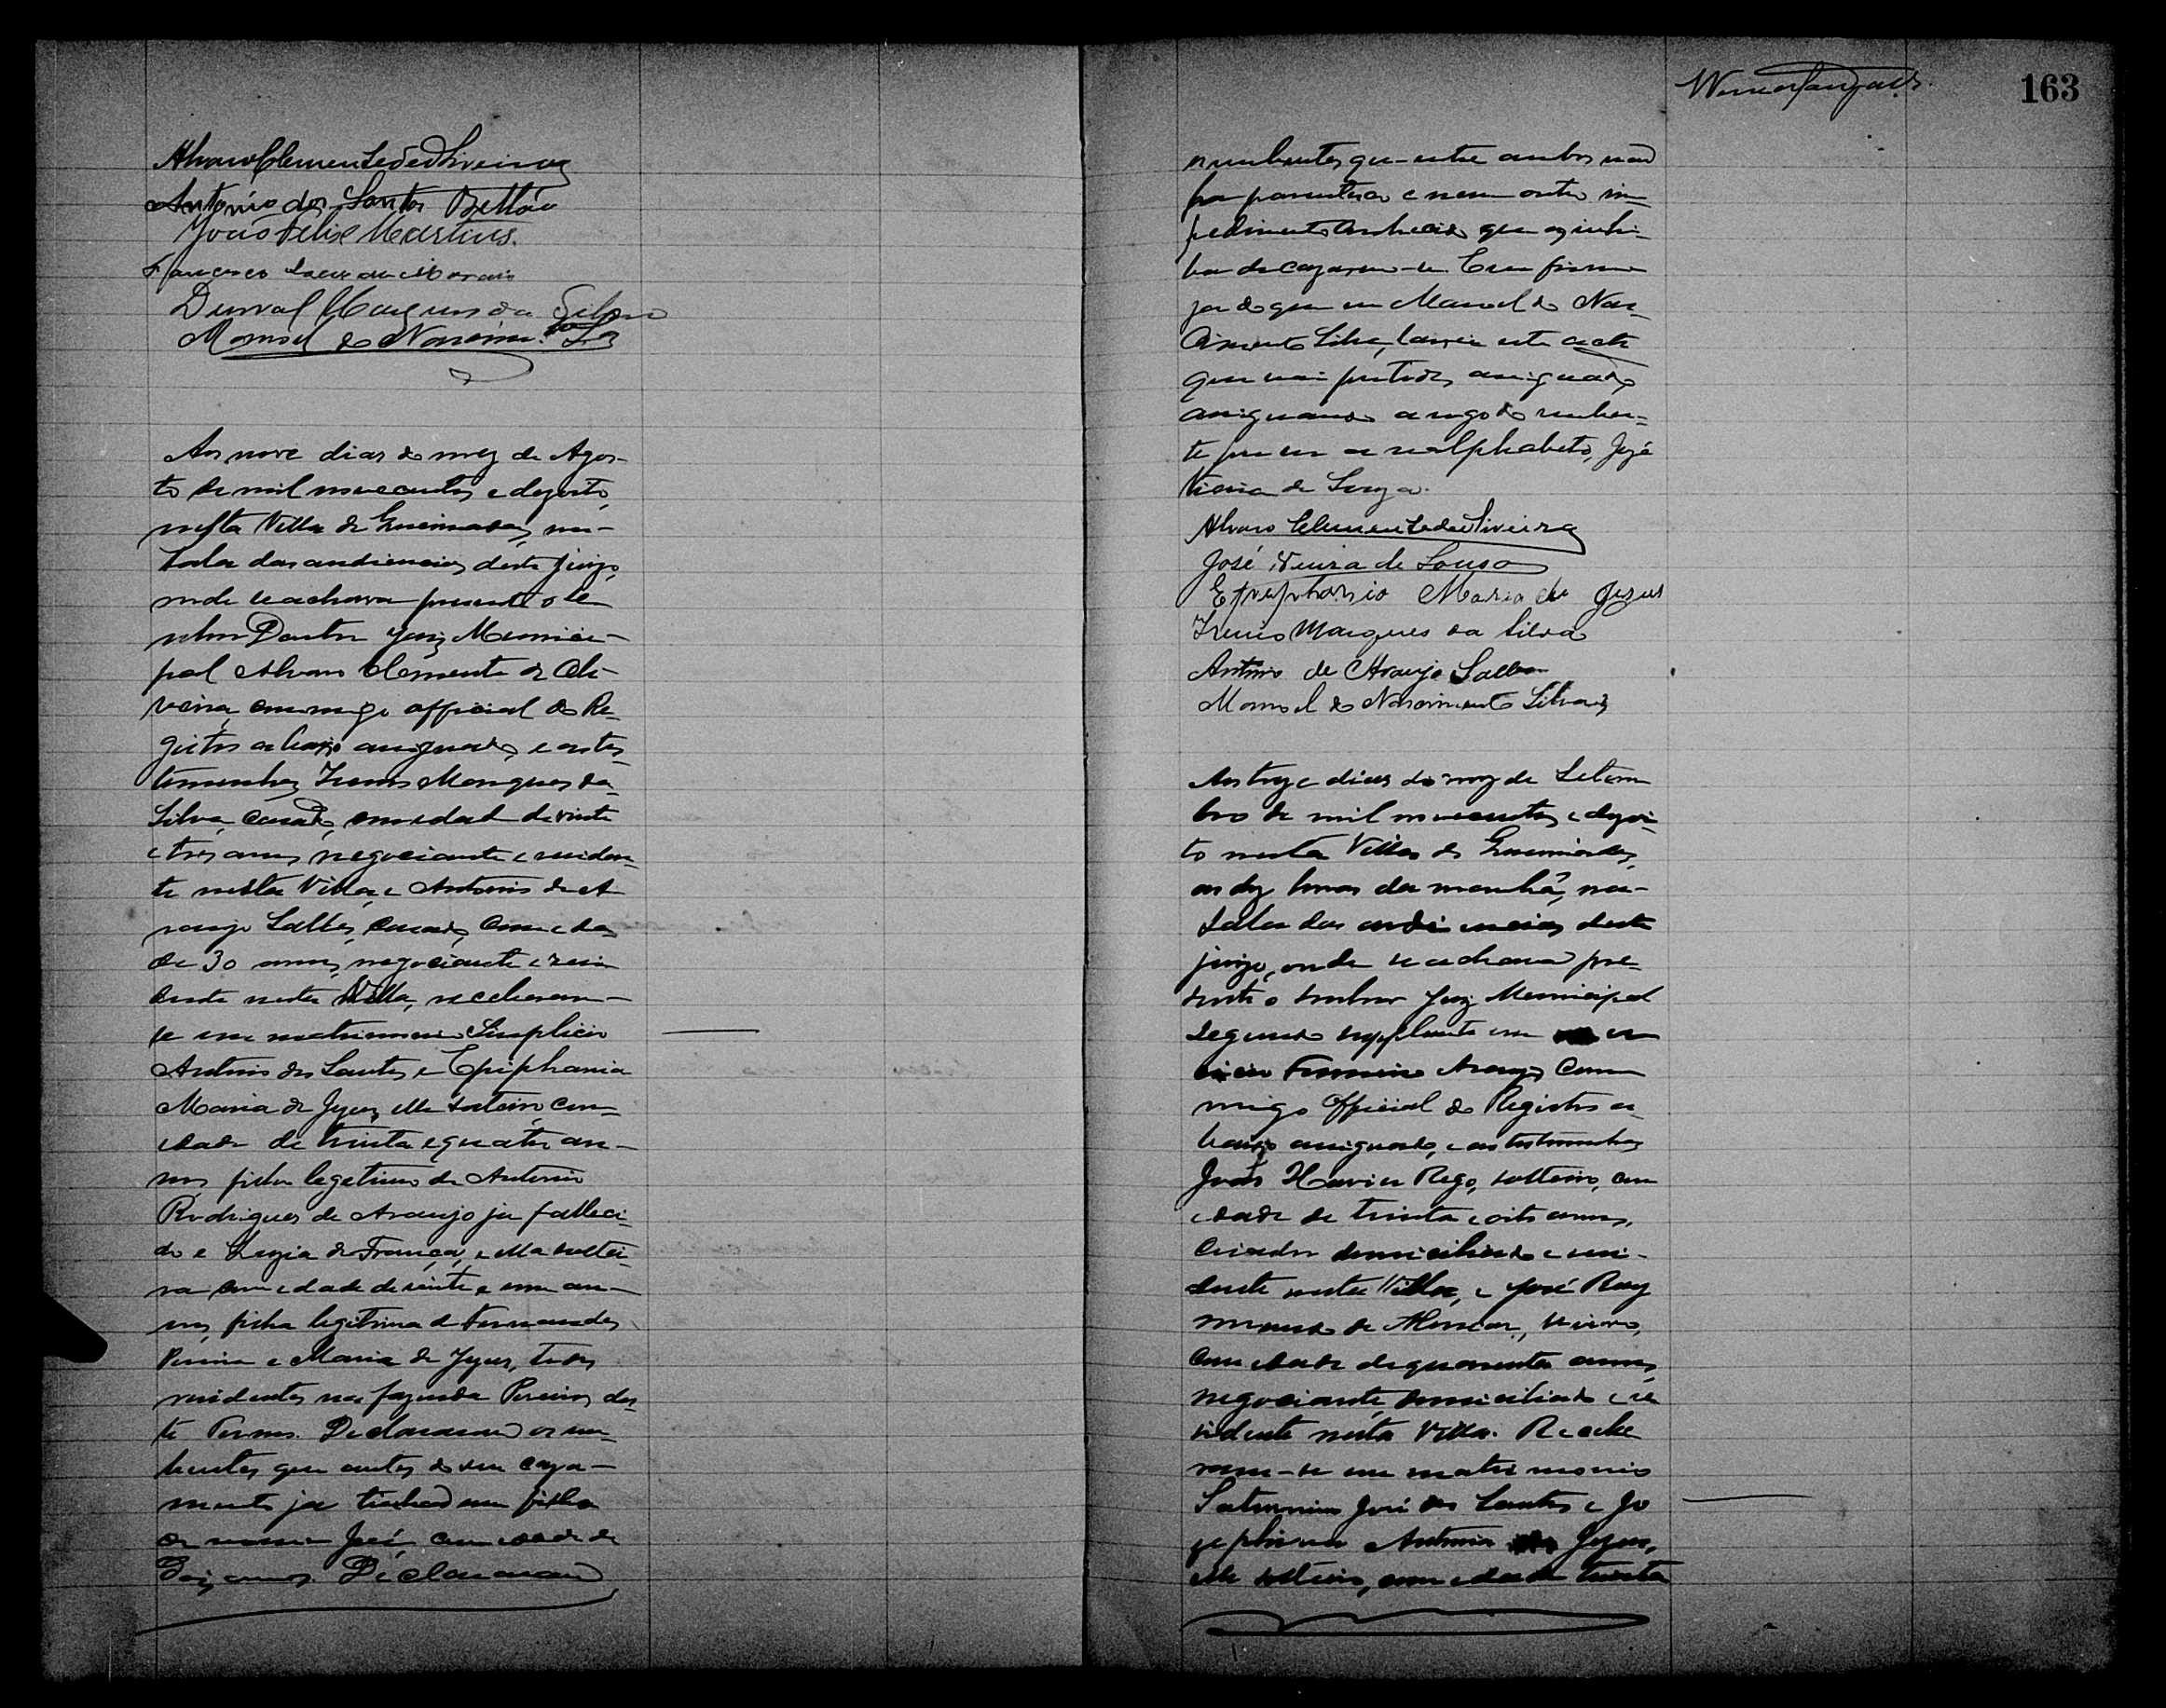 Alvaro Clemente de Oliveira
Antonio dos Santos Bellão
João Felix Martins.
Francisco
Durval Marques da Silva
Manoel do Nascim.to Sa
Aos nove dias do mez de Agos-
to de mil novecentos e dezoito,
nesta Villa de Queimadas, na
sala das audiencias deste juizo,
onde se achava presente o Se
nhor Doutor Juiz Munici-
pal Alvaro Clemente de Oli-
veira, commigo official do Re-
gistro abaixo assignado, e as tes
temunhas Ireno Marques da
Silva, casado, com edad de vinte
e tres annos negociante e residen
te nesta Villa, e Antonio de A
raujo Salles, casado, com eda
de 30 annos, negociante e resi
dente nesta Villa, receberam-
se em matrimonio Simplicio
Antonio dos Santos e Epiphania
Maria de Jezus, elle solteiro, com
edade de trinta e quatro an-
nos filho legetimo de Antonio
Rodrigues de Araujo ja falleci-
do e Luzia de França, e ella soltei-
ra com edade de vinte e um an-
nos, filha legitima de Fernandes
Pereira e Maria de Jezus, todos
residentes na fazenda Pereiros des
te Termo. Declararam os nu-
bentes que antes do seu caza-
mento ja tinham um filho
de nome José com edade de
Dois annos. Declararam
163
numbentes que entre ambos não
ha parentesco e nem outro im
pedimento conhecido que os inhi-
ba de cazarem-se. E em firme
za do que eu Manoel do Nas
cimento Silva, lavrei este acto
que vai por todos assignado
assignando a rogo do nuben-
te por ser analphabeto, José
Vieira de Souza.
Alvaro Clemente de Oliveira
José Vieira de Sousa
Epephania Maria de Jezus
Ireno Marques da Silva
Antonio de Araujo Salles
Manoel do Nascimento Silva
Aos treze dias do mez de Setem
bro de mil novecentos e dezoi-
to nesta Villa de Queimadas,
as dez horas da manhã, na
sala das audiencias deste
juizo, onde se achava pre-
sente o senhor Juiz Municipal
segundo supplente em ex
ercicio Firmino Araujo com
migo Official do Registro a
baixo assignado, e as testemunhas
João Xavier Rego, solteiro, com
edade de trinta e oito annos,
criador domiciliado e resi-
dente nesta Villa, e José Ray
mundo de Alencar, viuvo,
com edade de quarenta annos,
negociante, domiciliado e re
sidente nesta Villa. Recebe
ram-se em matrimonio
Saturnino José dos Santos e Jo
zephina Antonia Jezus,
elle solteiro, com edade trinta